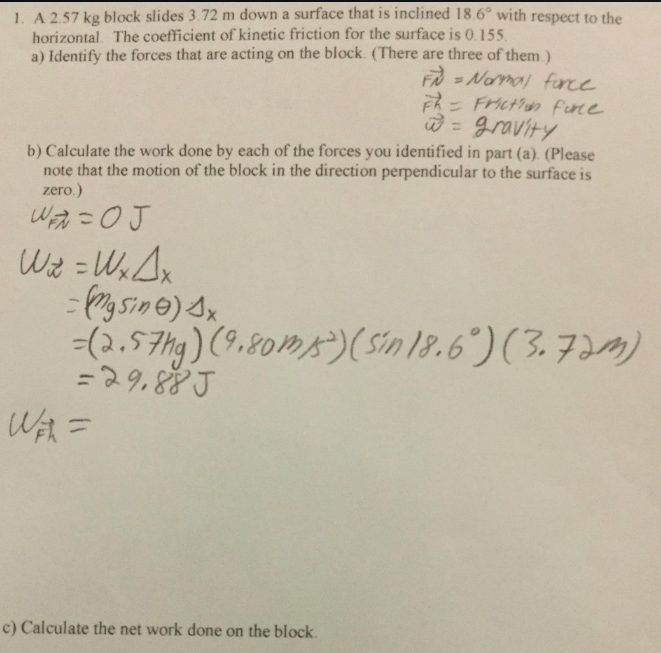 1. A 2.57 kg block slides 3.72 m down a surface that is inclined 18.6° with respect to the
horizontal. The coefficient of kinetic friction for the surface is 0.155.
a) Identify the forces that are acting on the block. (There are three of them.)
F⃗N = Normal force
F⃗k = Friction force
w⃗ = gravity
b) Calculate the work done by each of the forces you identified in part (a). (Please
note that the motion of the block in the direction perpendicular to the surface is
zero.)
W_F⃗N = 0 J
W_w⃗ = Wx Δx
= (mg sin θ) Δx
= (2.57kg) (9.80 m/s²) (sin 18.6°) (3.72m)
= 29.88 J
W_F⃗k =
c) Calculate the net work done on the block.